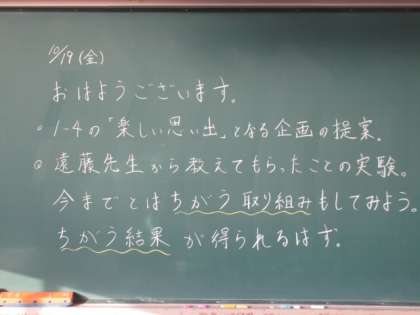 10/19(金)
おはようございます。
○1-4の「楽しい思い出」となる企画の提案.
◎遠藤先生から教えてもらったことの実験。
今までとはちがう取り組みもしてみよう。
ちがう結果が得られるはず.